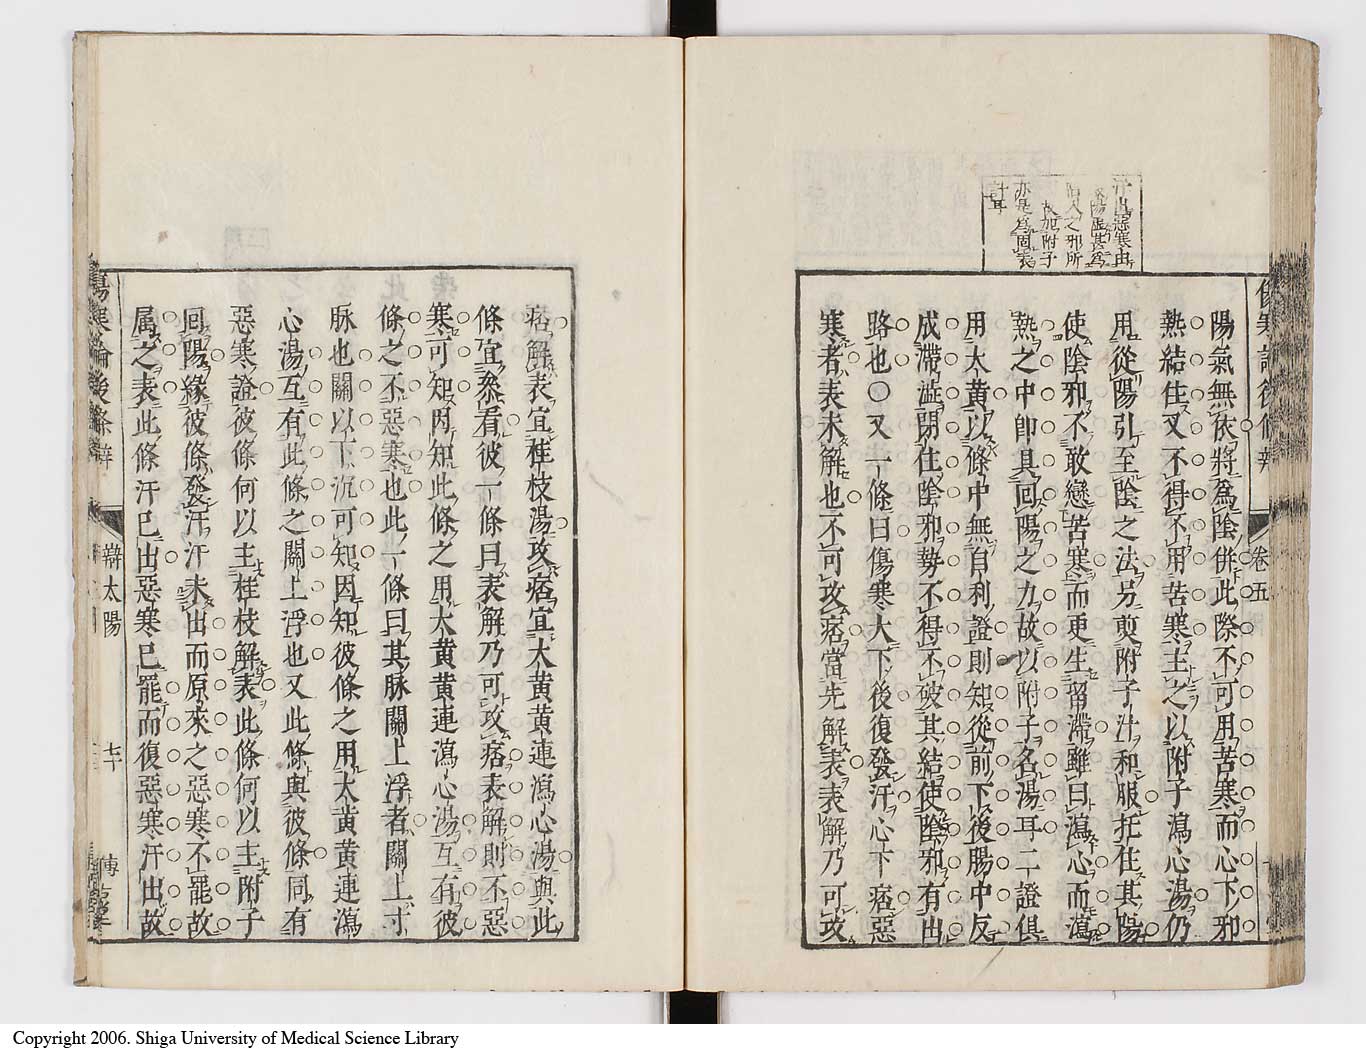 汗出惡寒由
陽虛甚爲
陷入之邪所
故加附子
亦是爲固表
計耳
傷寒論後條辨
卷五
陽氣無依將爲陰併此際不可用苦寒而心下邪
熱結住又不得不用苦寒主之以附子瀉心湯仍
用從陽引至陰之法另煎附子汁和服托住其陽
使陰邪不敢戀苦寒而更生留滯雖曰瀉心而瀉
熱之中卽具回陽之力故以附子名湯耳二證俱
用大黃以條中無自利證則知從前下後腸中反
成滯澁閉住陰邪勢不得不破其結使陰邪有出
路也○又一條曰傷寒大下後復發汗心下痞惡
寒者表未解也不可攻痞當先解表表解乃可攻
痞解表宜桂枝湯攻痞宜大黃黃連瀉心湯與此
條宜叅看彼一條曰表解乃可攻痞表解則不惡
寒可知因知此條之用大黃黃連瀉心湯互有彼
條之不惡寒也此一條曰其脉關上浮者關上寸
脉也關以下沉可知因知彼條之用大黃黃連瀉
心湯互有此條之關上浮也又此條與彼條同有
惡寒證彼條何以主桂枝解表此條何以主附子
回陽緣彼條發汗汗未出而原來之惡寒不罷故
属之表此條汗已出惡寒已罷而復惡寒汗出故
傷寒論後條辨
辯太陽
七十